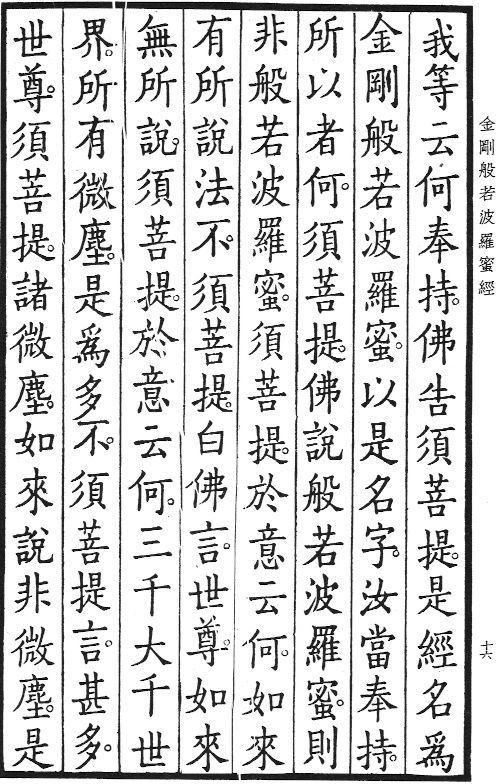 金剛般若波羅蜜經
十六
我等云何奉持。佛告須菩提。是經名爲
金剛般若波羅蜜。以是名字。汝當奉持。
所以者何。須菩提。佛說般若波羅蜜。則
非般若波羅蜜。須菩提。於意云何。如來
有所說法不。須菩提。白佛言。世尊。如來
無所說。須菩提。於意云何。三千大千世
界。所有微塵。是爲多不。須菩提言。甚多。
世尊。須菩提。諸微塵。如來說非微塵。是